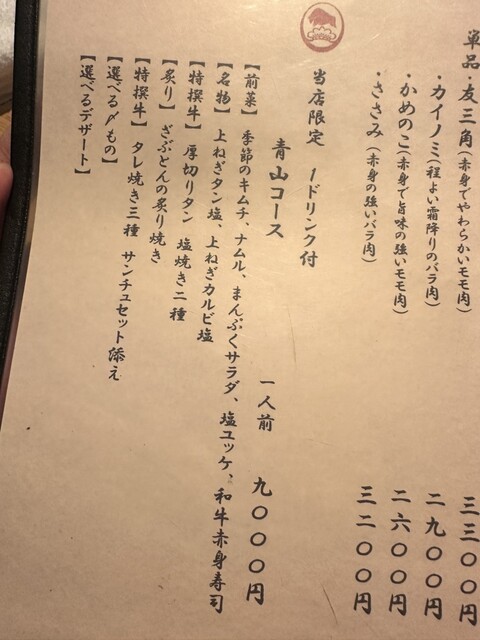 単品・友三角（赤身でやわらかいモモ肉） 三三〇〇円
・カイノミ（程よい霜降りのバラ肉） 二九〇〇円
・かめのこ（赤身で旨味の強いモモ肉） 二六〇〇円
・ささみ（赤身の強いバラ肉） 三二〇〇円
当店限定 1ドリンク付
青山コース 一人前 九〇〇〇円
【前菜】 季節のキムチ、ナムル、まんぷくサラダ、塩ユッケ、和牛赤身寿司
【名物】 上ねぎタン塩、上ねぎカルビ塩
【特撰牛】 厚切りタン 塩焼き二種
【炙り】 ざぶとんの炙り焼き
【特撰牛】 タレ焼き三種 サンチュセット添え
【選べる〆もの】
【選べるデザート】